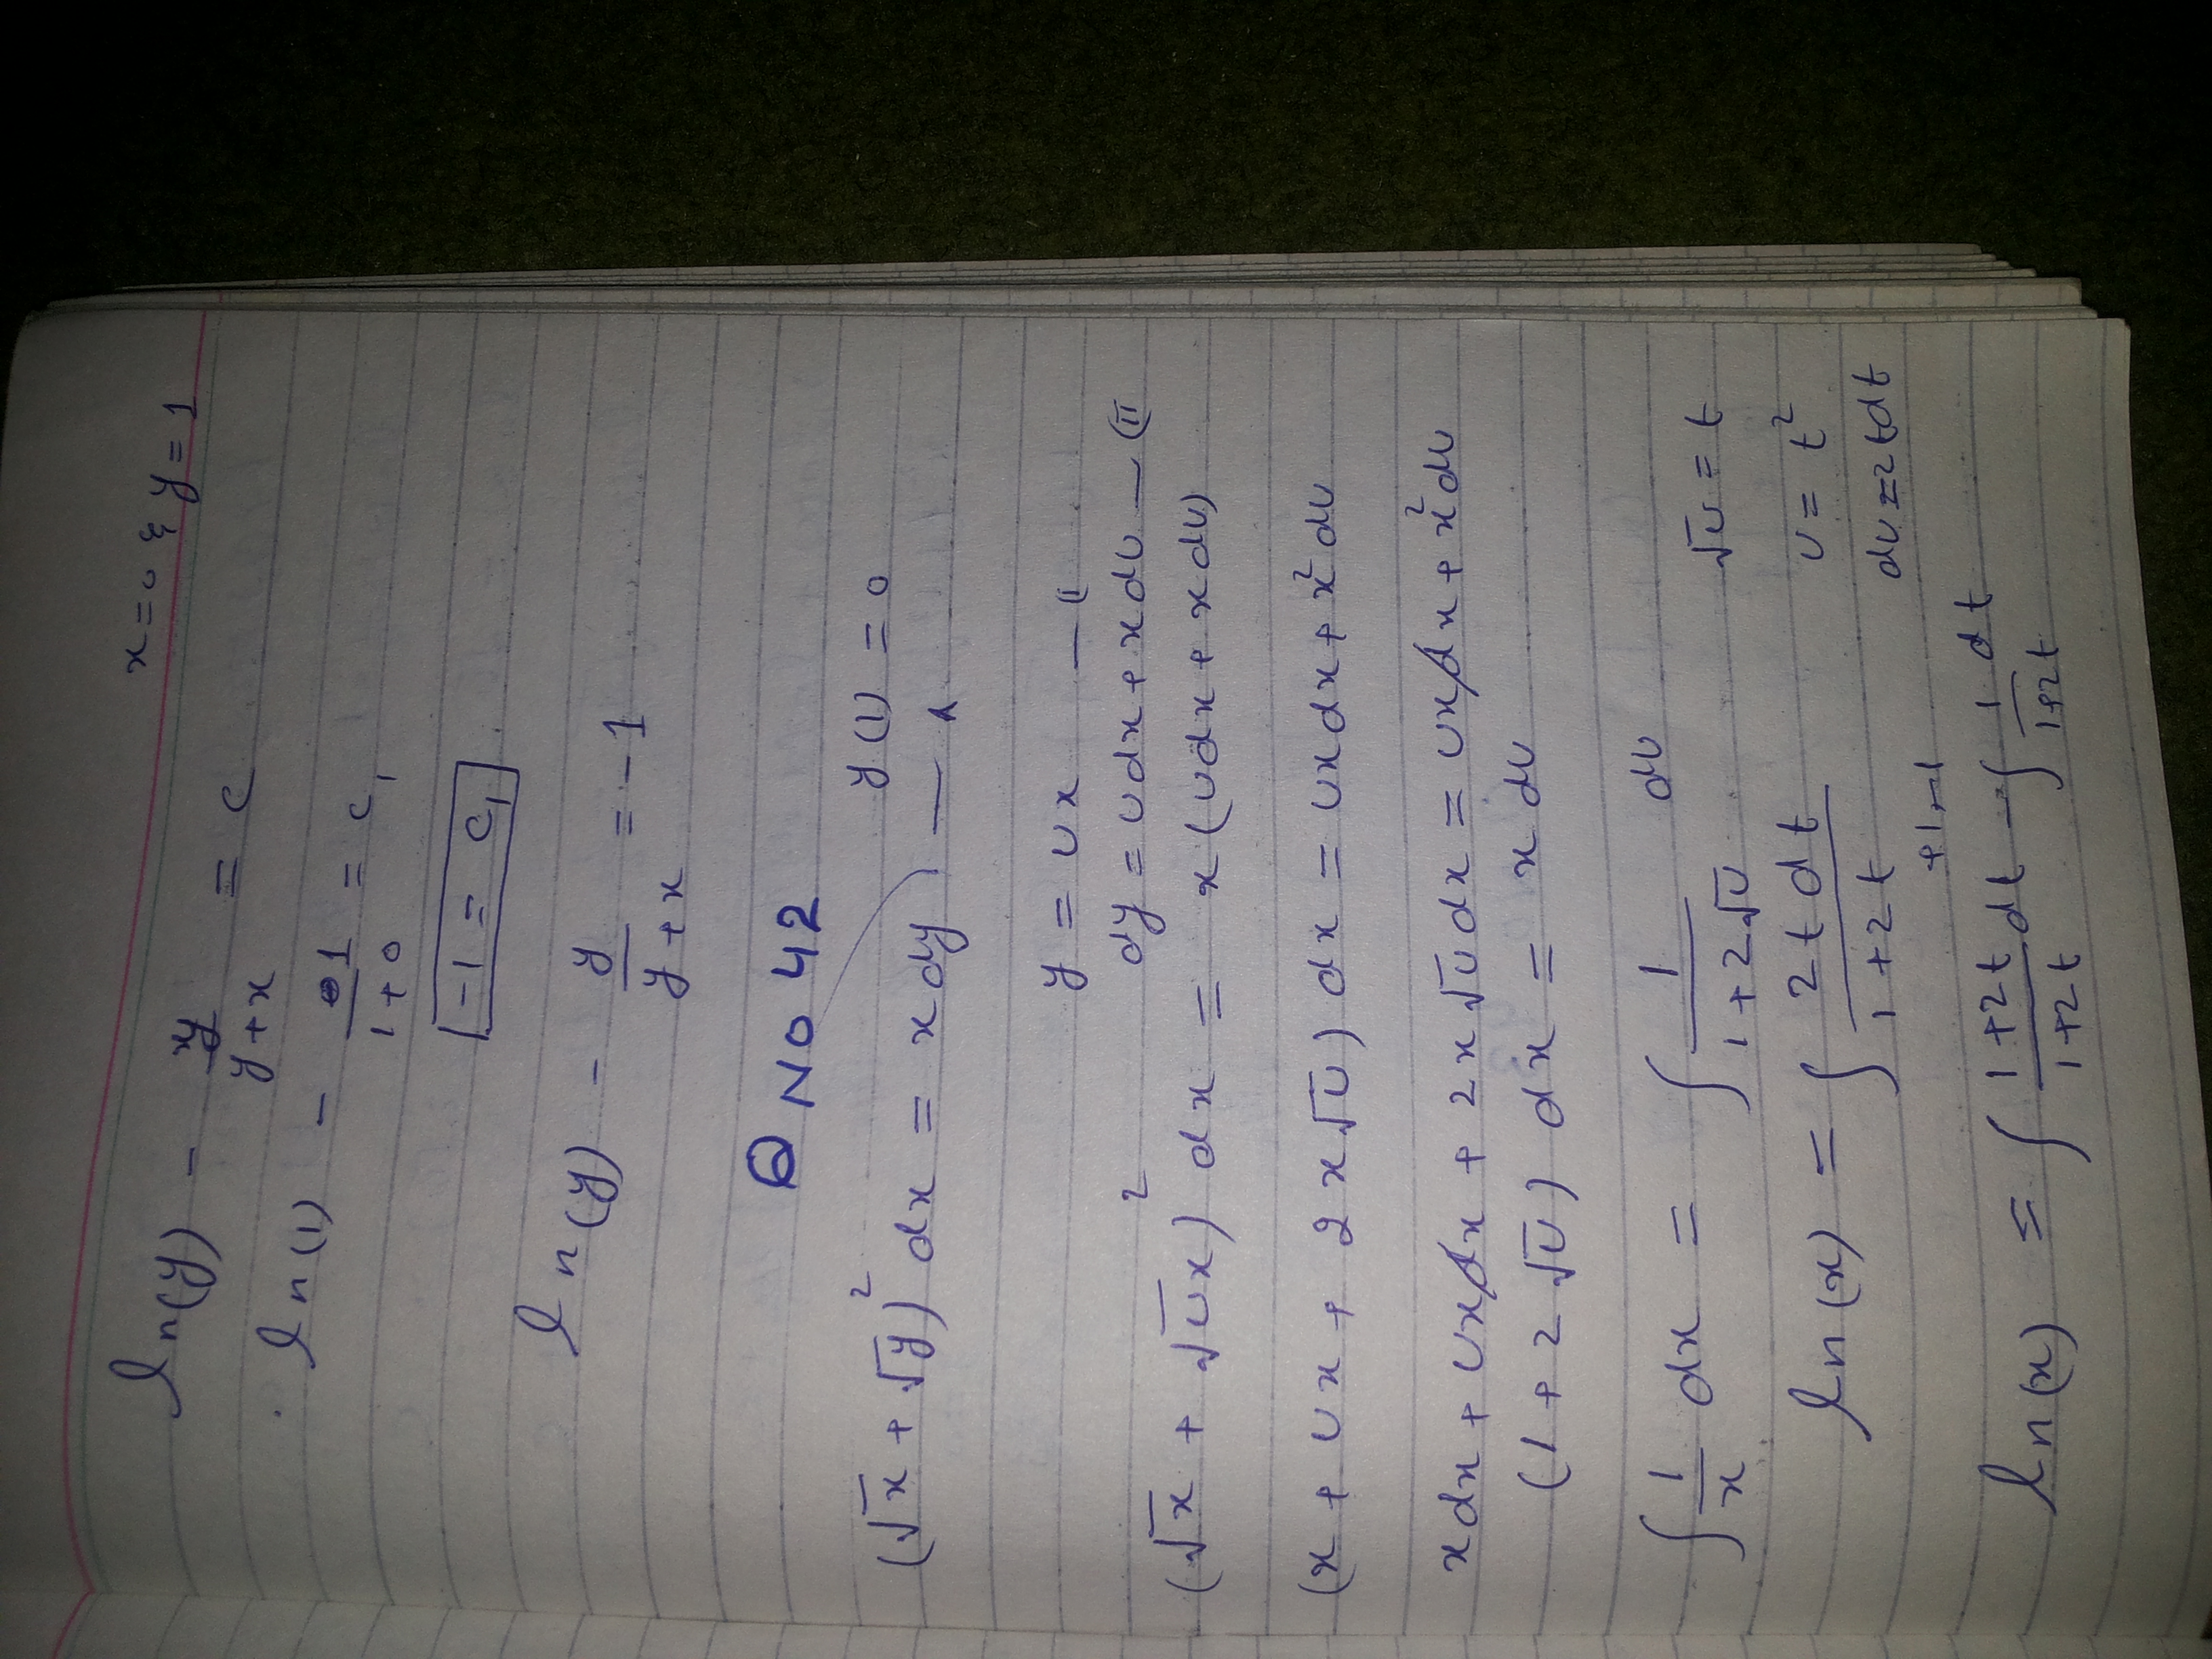 x = 0 & y = 1
ln(y) - y/(y+x) = c
ln(1) - 1/(1+0) = c₁
-1 = c₁
ln(y) - y/(y+x) = -1
Q No 42
y(1) = 0
(√x + √y)² dx = x dy — A
y = ux — (I
dy = udx + x du — (II
(√x + √ux)² dx = x(udx + x du)
(x + ux + 2x√u) dx = uxdx + x² du
xdx + uxdx + 2x√u dx = uxdx + x² du
(1 + 2√u) dx = x du
∫ 1/x dx = ∫ 1/(1+2√u) du
√u = t
ln(x) = ∫ 2t dt/(1+2t)
u = t²
du = 2tdt
+1-1
ln(x) = ∫ (1+2t)/(1+2t) dt - ∫ 1/(1+2t) dt